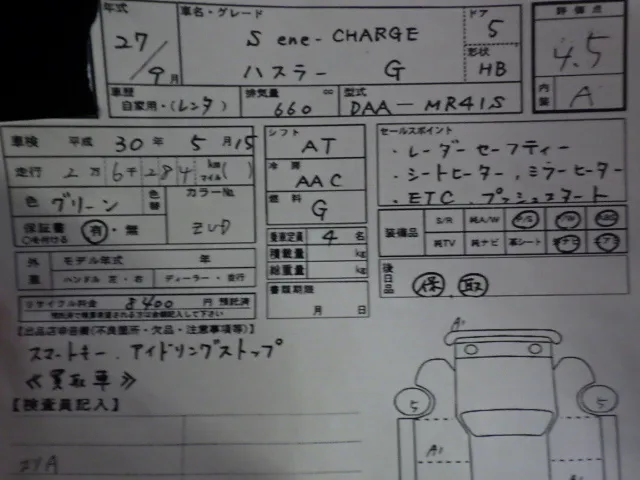 年式 27/9月
車名・グレード S ene-CHARGE ハスラー G
ドア 5
形状 HB
評価点 4.5
内装 A
車歴 自家用・(レンタ)
排気量 660 cc
型式 DAA-MR41S
車検 平成 30年 5月15
走行 2万6千284 km マイル( )
色 グリーン 色替 カラー№ ZUD
保証書 ○を付ける 有・無
シフト AT
冷房 AAC
燃料 G
セールスポイント
・レーダーセーフティー
・シートヒーター、ミラーヒーター
・ETC、プッシュスタート
乗車定員 4名
積載量 kg
総重量 kg
装備品 S/R 純A/W P/S P/W ABS
純TV 純ナビ 革シート
外車 モデル年式 年
ハンドル 左・右 ディーラー・並行
書類期限 月 日
後日品 保 取
リサイクル料金 8400 円 預託済
預託済で検票券渡される方は金額記入して下さい
【出品店申告書(不良箇所・欠品・注意事項等)】
スマートキー、アイドリングストップ
≪買取車≫
【検査員記入】
A1
5
5
A1